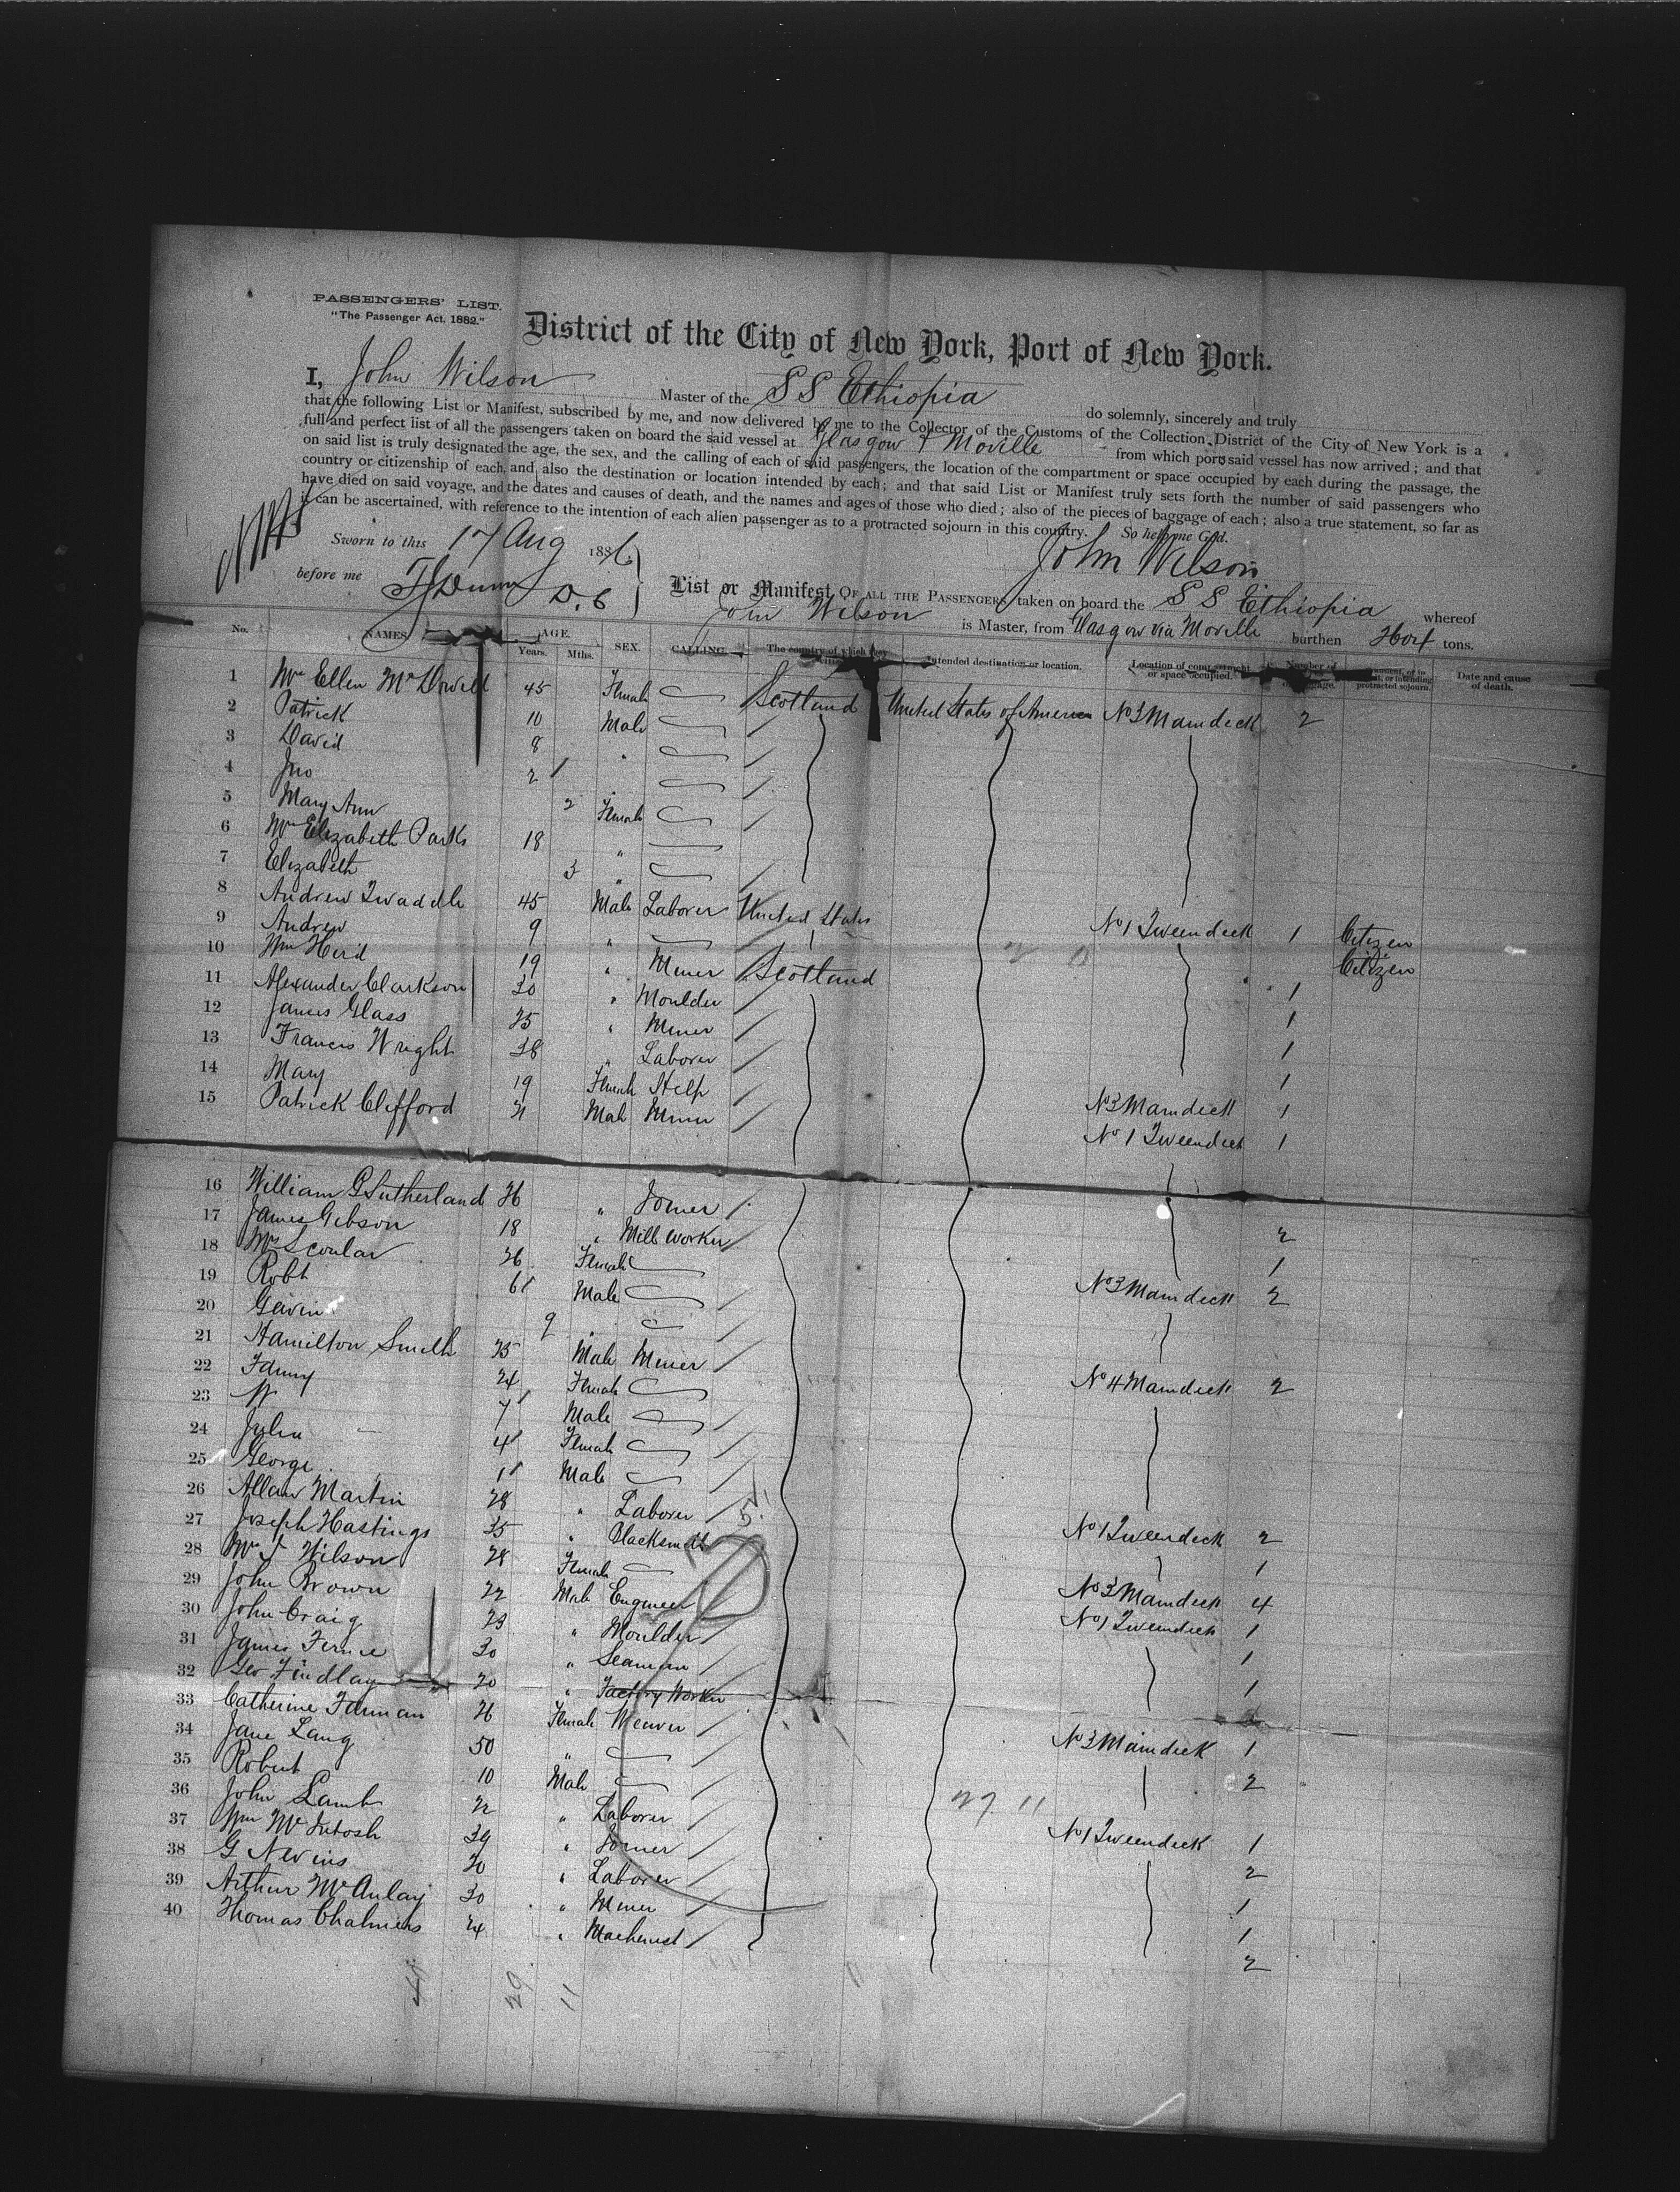 PASSENGERS' LIST.
"The Passenger Act, 1882."
District of the City of New York, Port of New York.
I, John Wilson Master of the S S Ethiopia do solemnly, sincerely and truly
that the following List or Manifest, subscribed by me, and now delivered by me to the Collector of the Customs of the Collection District of the City of New York is a
full and perfect list of all the passengers taken on board the said vessel at Glasgow & Moville from which ports said vessel has now arrived; and that
on said list is truly designated the age, the sex, and the calling of each of said passengers, the location of the compartment or space occupied by each during the passage, the
country or citizenship of each, and also the destination or location intended by each; and that said List or Manifest truly sets forth the number of said passengers who
have died on said voyage, and the dates and causes of death, and the names and ages of those who died; also of the pieces of baggage of each; also a true statement, so far as
it can be ascertained, with reference to the intention of each alien passenger as to a protracted sojourn in this country. So help me God.
Sworn to this 17 Aug 1886 John Wilson
before me D.C
List or Manifest OF ALL THE PASSENGERS taken on board the S S Ethiopia whereof
John Wilson is Master, from Glasgow via Moville burthen tons.
No. NAMES. AGE. Years. Mths. SEX. CALLING. The country of which they Intended destination or location. Location of compartment or space occupied. Number of protracted sojourn. Date and cause of death.
1 Mrs Ellen McDowell 45 Female Scotland United States of America No 3 Maindeck 2
2 Patrick 10 Male
3 David 8 "
4 Jno 2
5 Mary Ann 2 Female
6 Mrs Elizabeth Parks 18 "
7 Elizabeth 3 "
8 Andrew Twaddle 45 Male Laborer United States No 1 Tweendeck 1 Citizen
9 Andrew 9 " Citizen
10 Wm Heid 19 " Miner Scotland 1
11 Alexander Clarkson 30 " Moulder 1
12 James Glass 25 " Miner 1
13 Francis Wright 28 " Laborer 1
14 Mary 19 Female Help No 3 Maindeck 1
15 Patrick Clifford 21 Male Miner No 1 Tweendeck 1
16 William G Sutherland 26 " Joiner 2
17 James Gibson 18 " Mill worker 1
18 Mrs Scoular 26 Female No 3 Maindeck 2
19 Robt 6 Male
20 Gavin 9 "
21 Hamilton Smith 25 Male Miner No 4 Maindeck 2
22 Fanny 24 Female
23 W 7 Male
24 Julia 4 Female
25 George 1 Male
26 Allan Martin 28 " Laborer No 1 Tweendeck 2
27 Joseph Hastings 35 " Blacksmith 1
28 Mrs J Wilson 28 Female No 3 Maindeck 4
29 John Brown 22 Male Engineer No 1 Tweendeck 1
30 John Craig 23 " Moulder 1
31 James Fernie 30 " Seaman 1
32 Geo Findlay 20 " Factory Worker
33 Catherine Fannan 26 Female Weaver No 3 Maindeck 1
34 Jane Lang 50 " 2
35 Robert 10 Male
36 John Lamb 22 " Laborer No 1 Tweendeck 1
37 Wm McIntosh 39 " Joiner 2
38 G Nevins 20 " Laborer 1
39 Arthur McAulay 30 " Miner 1
40 Thomas Chalmers 24 " Machinist 2
27 11
29 11